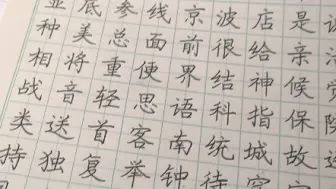 底参线京波店是
种美总面前很给亲
相将重使界结神候
战音轻思语科指保
类送首客南统城故
持独复举钟待